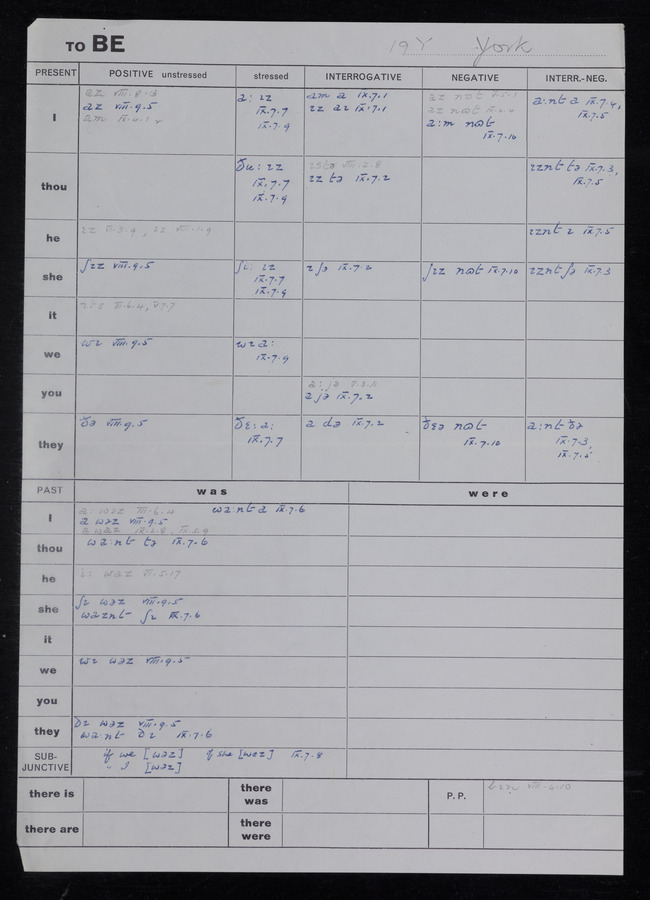 TO BE 19 Y York
PRESENT POSITIVE unstressed stressed INTERROGATIVE NEGATIVE INTERR.-NEG.
I
az VIII.9.5
a: ɪz IX.7.7 IX.7.9
am a IX.7.1
ɪz aɪ IX.7.1
a:m nɒt IX.7.10
a:nt a IX.7.4, IX.7.5
thou
ðu: ɪz IX.7.7 IX.7.9
ɪz tə IX.7.2
ɪznt tə IX.7.3, IX.7.5
he
ɪznt ɪ IX.7.5
she
ʃɪz VIII.9.5
ʃi: ɪz IX.7.7 IX.7.9
ɪ ʃə IX.7.2
ʃɪz nɒt IX.7.10
ɪznt ʃə IX.7.3
it
we
wɪ VIII.9.5
wɪa: IX.7.9
you
a jə IX.7.2
they
ðə VIII.9.5
ðɛ: a: IX.7.7
a də IX.7.2
ðɛə nɒt IX.7.10
a:nt ðə IX.7.3, IX.7.5
PAST was were
I
wa:nt a IX.7.6
a wəz VIII.9.5
thou
wa:nt tə IX.7.6
he
i: wəz VI.5.17
she
ʃɪ wəz VIII.9.5
waznt ʃɪ IX.7.6
it
we
wɪ wəz VIII.9.5
you
they
ðɪ wəz VIII.9.5
wa:nt ðɪ IX.7.6
SUB-JUNCTIVE
if we [wəz] if she [wəz] IX.7.8
" I [wəz]
there is there was P.P. VIII.4.10
there are there were